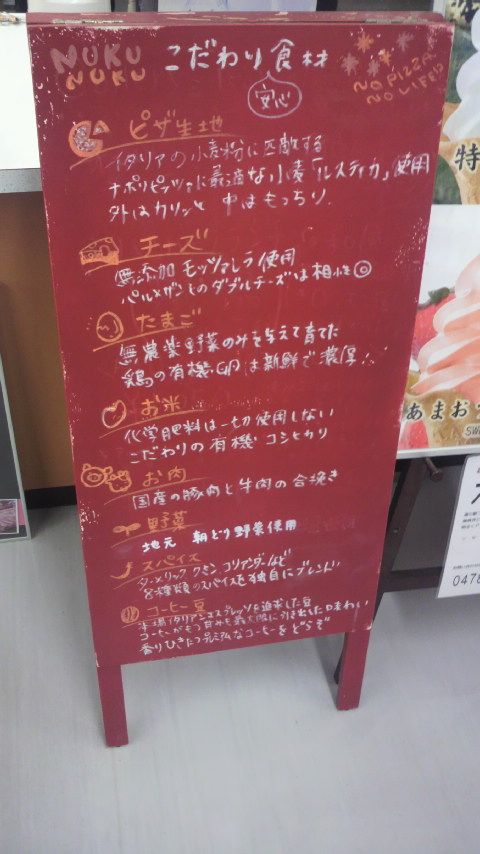 NUKU
NUKU
こだわり食材
安心
NO PIZZA
NO LIFE!!
ピザ生地
イタリアの小麦粉に匹敵する
ナポリピッツァに最適な小麦「ルスティカ」使用
外はカリッと 中はもっちり。
チーズ
無添加モッツァレラ使用
パルメザンとのダブルチーズは相性◎
たまご
無農薬野菜のみを与えて育てた
鶏の有機卵は新鮮で濃厚
お米
化学肥料は一切使用しない
こだわりの有機コシヒカリ
お肉
国産の豚肉と牛肉の合挽き
野菜
地元 朝どり野菜使用
スパイス
ターメリック クミン コリアンダーなど
8種類のスパイスを独自にブレンド
コーヒー豆
本場イタリアンエスプレッソを追求した豆
コーヒーがもつ甘みを最大限に引き出した味わい
香りひきたつプレミアムなコーヒーをどうぞ
特
あまおう
SW
0478